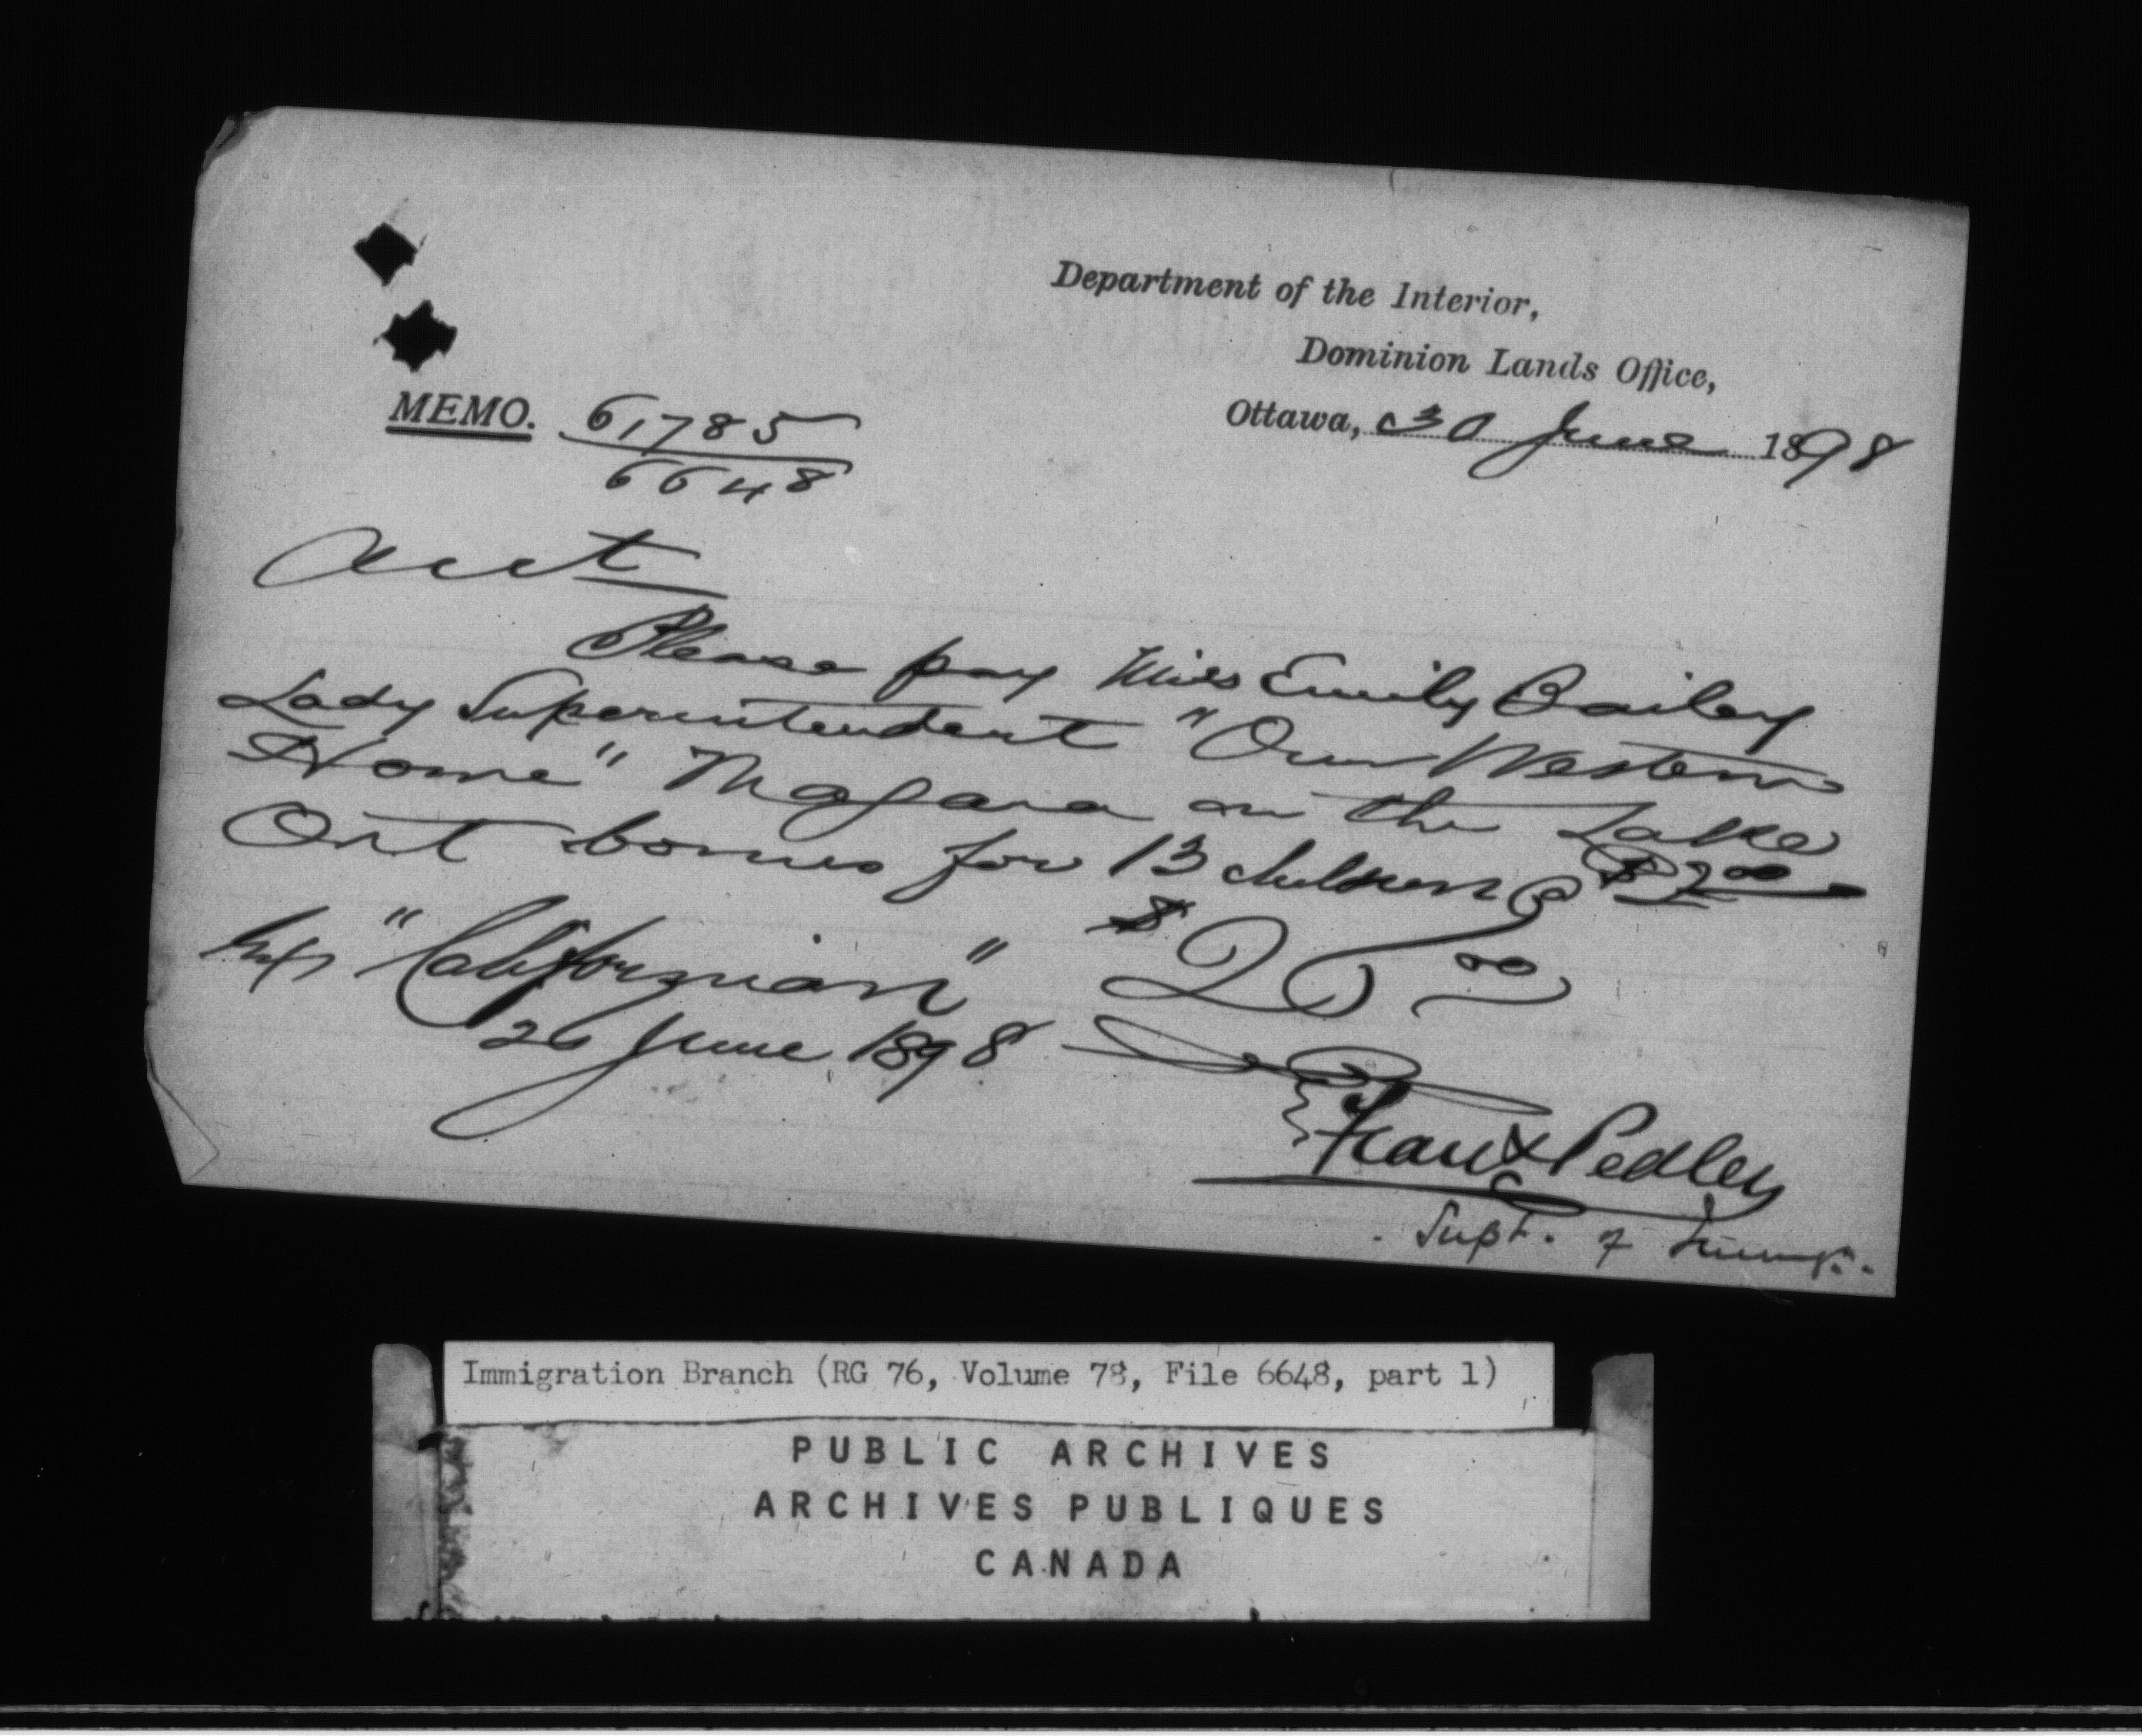 Department of the Interior,
Dominion Lands Office,
Ottawa, 30 June 1898
MEMO. 61785
6648
Acct
Please pay Miss Emily Bailey
Lady Superintendent "Our Western
Home" Niagara on the Lake
Ont bonus for 13 children @ $2.00
$26.00
"Californian"
26 June 1898
Frank Pedley
Supt. of Immig.
Immigration Branch (RG 76, Volume 78, File 6648, part 1)
PUBLIC ARCHIVES
ARCHIVES PUBLIQUES
CANADA